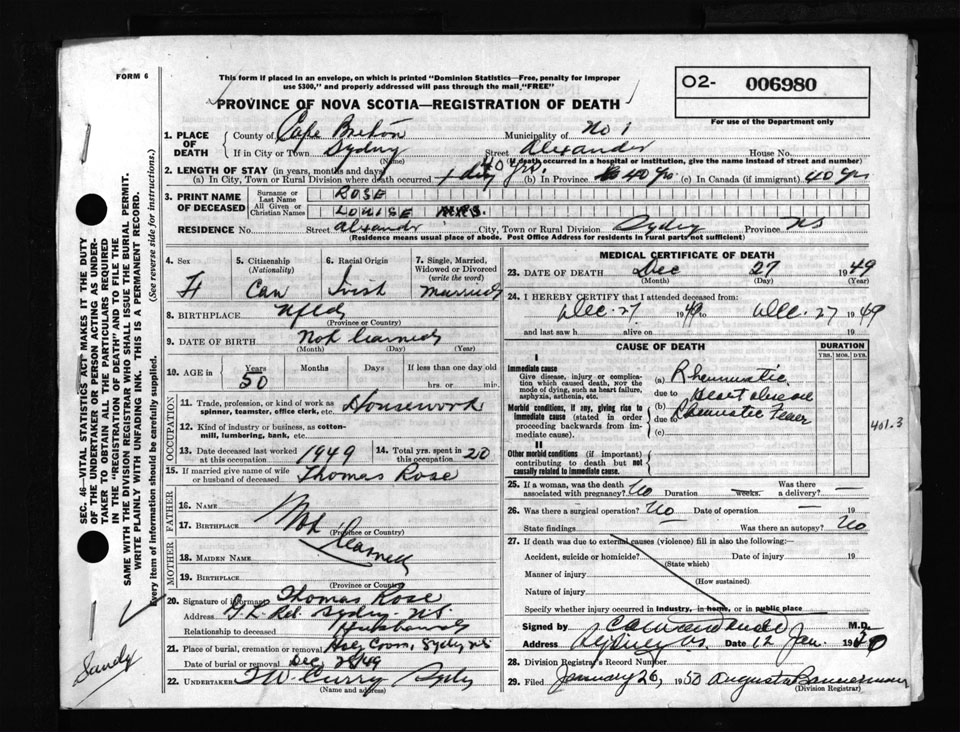 FORM 6
This form if placed in an envelope, on which is printed "Dominion Statistics—Free, penalty for improper
use $300," and properly addressed will pass through the mail "FREE"
O2- 006980
For use of the Department only
PROVINCE OF NOVA SCOTIA—REGISTRATION OF DEATH
1. PLACE OF DEATH County of Cape Breton Municipality of No 1
If in City or Town Sydney Street Alexander House No.
(Name) (If death occurred in a hospital or institution, give the name instead of street and number)
2. LENGTH OF STAY (in years, months and days)
(a) In City, Town or Rural Division where death occurred 40 yrs. (b) In Province 40 yrs (c) In Canada (if immigrant) 40 yrs
3. PRINT NAME OF DECEASED Surname or Last Name ROSE
All Given or Christian Names LOUISE MRS.
RESIDENCE No. Street Alexander City, Town or Rural Division Sydney Province NS
(Residence means usual place of abode. Post Office Address for residents in rural parts not sufficient)
4. Sex F
5. Citizenship (Nationality) Can
6. Racial Origin Irish
7. Single, Married, Widowed or Divorced (write the word) Married
8. BIRTHPLACE Nfld
(Province or Country)
9. DATE OF BIRTH Not learned
(Month) (Day) (Year)
10. AGE in Years Months Days If less than one day old
50 hrs. or min.
OCCUPATION
11. Trade, profession or kind of work as spinner, teamster, office clerk, etc. Housework
12. Kind of industry or business, as cotton-mill, lumbering, bank, etc.
13. Date deceased last worked at this occupation 1949
14. Total yrs. spent in this occupation 20
15. If married give name of wife or husband of deceased Thomas Rose
FATHER
16. NAME Not learned
17. BIRTHPLACE
(Province or Country)
MOTHER
18. MAIDEN NAME
19. BIRTHPLACE
(Province or Country)
20. Signature of informant Thomas Rose
Address Sydney NS.
Relationship to deceased Husband
21. Place of burial, cremation or removal Holy Cross, Sydney NS
Date of burial or removal Dec 28/49
22. UNDERTAKER T W Curry Sydney
(Name and address)
MEDICAL CERTIFICATE OF DEATH
23. DATE OF DEATH Dec 27 1949
(Month) (Day) (Year)
24. I HEREBY CERTIFY that I attended deceased from
Dec. 27 1949 to Dec. 27 1949
and last saw h alive on 19
CAUSE OF DEATH
DURATION
YRS. MOS. DYS.
I
Immediate cause
Give disease, injury or complication which caused death, NOT the mode of dying, such as heart failure, asphyxia, asthenia, etc.
(a) Rheumatic
due to Heart disease
Morbid conditions, if any, giving rise to immediate cause (stated in order proceeding backwards from immediate cause).
(b) Rheumatic Fever
due to
(c)
401.3
II
Other morbid conditions (if important) contributing to death but not causally related to immediate cause.
25. If a woman, was the death associated with pregnancy? No Duration weeks. Was there a delivery? —
26. Was there a surgical operation? No Date of operation —
State findings Was there an autopsy? No
27. If death was due to external causes (violence) fill in also the following:—
Accident, suicide or homicide? Date of injury 19
(State which)
Manner of injury
(How sustained)
Nature of injury
Specify whether injury occurred in industry, in home, or in public place
Signed by M.D.
Address Sydney NS. Date 12 Jan. 1950
28. Division Registrar's Record Number
29. Filed January 26, 1950 Augusta Bannerman
(Division Registrar)
SEC. 46—VITAL STATISTICS ACT MAKES IT THE DUTY
OF THE UNDERTAKER OR PERSON ACTING AS UNDER-
TAKER TO OBTAIN ALL THE PARTICULARS REQUIRED
IN THE "REGISTRATION OF DEATH" AND TO FILE THE
SAME WITH THE DIVISION REGISTRAR WHO SHALL ISSUE THE BURIAL PERMIT.
WRITE PLAINLY WITH UNFADING INK. THIS IS A PERMANENT RECORD.
Every item of information should be carefully supplied. (See reverse side for instructions.)
Sandy